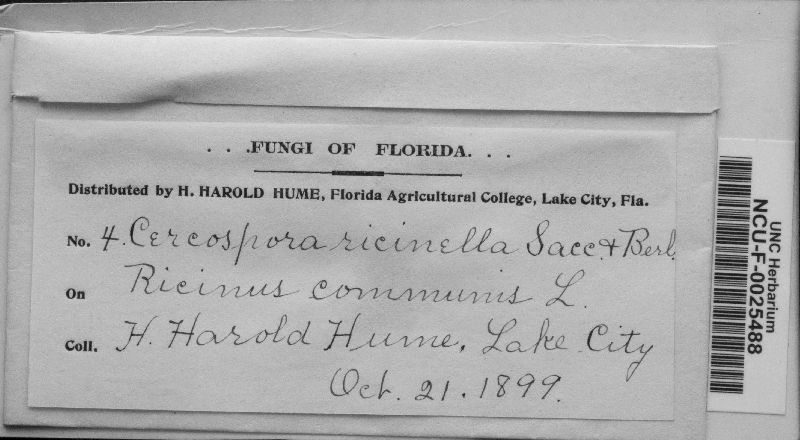 . . .FUNGI OF FLORIDA. . .
Distributed by H. HAROLD HUME, Florida Agricultural College, Lake City, Fla.
No. 4. Cercospora ricinella Sacc. & Berl.
On Ricinus communis L.
Coll. H. Harold Hume, Lake City
Oct. 21. 1899.
UNC Herbarium
NCU-F-0025488